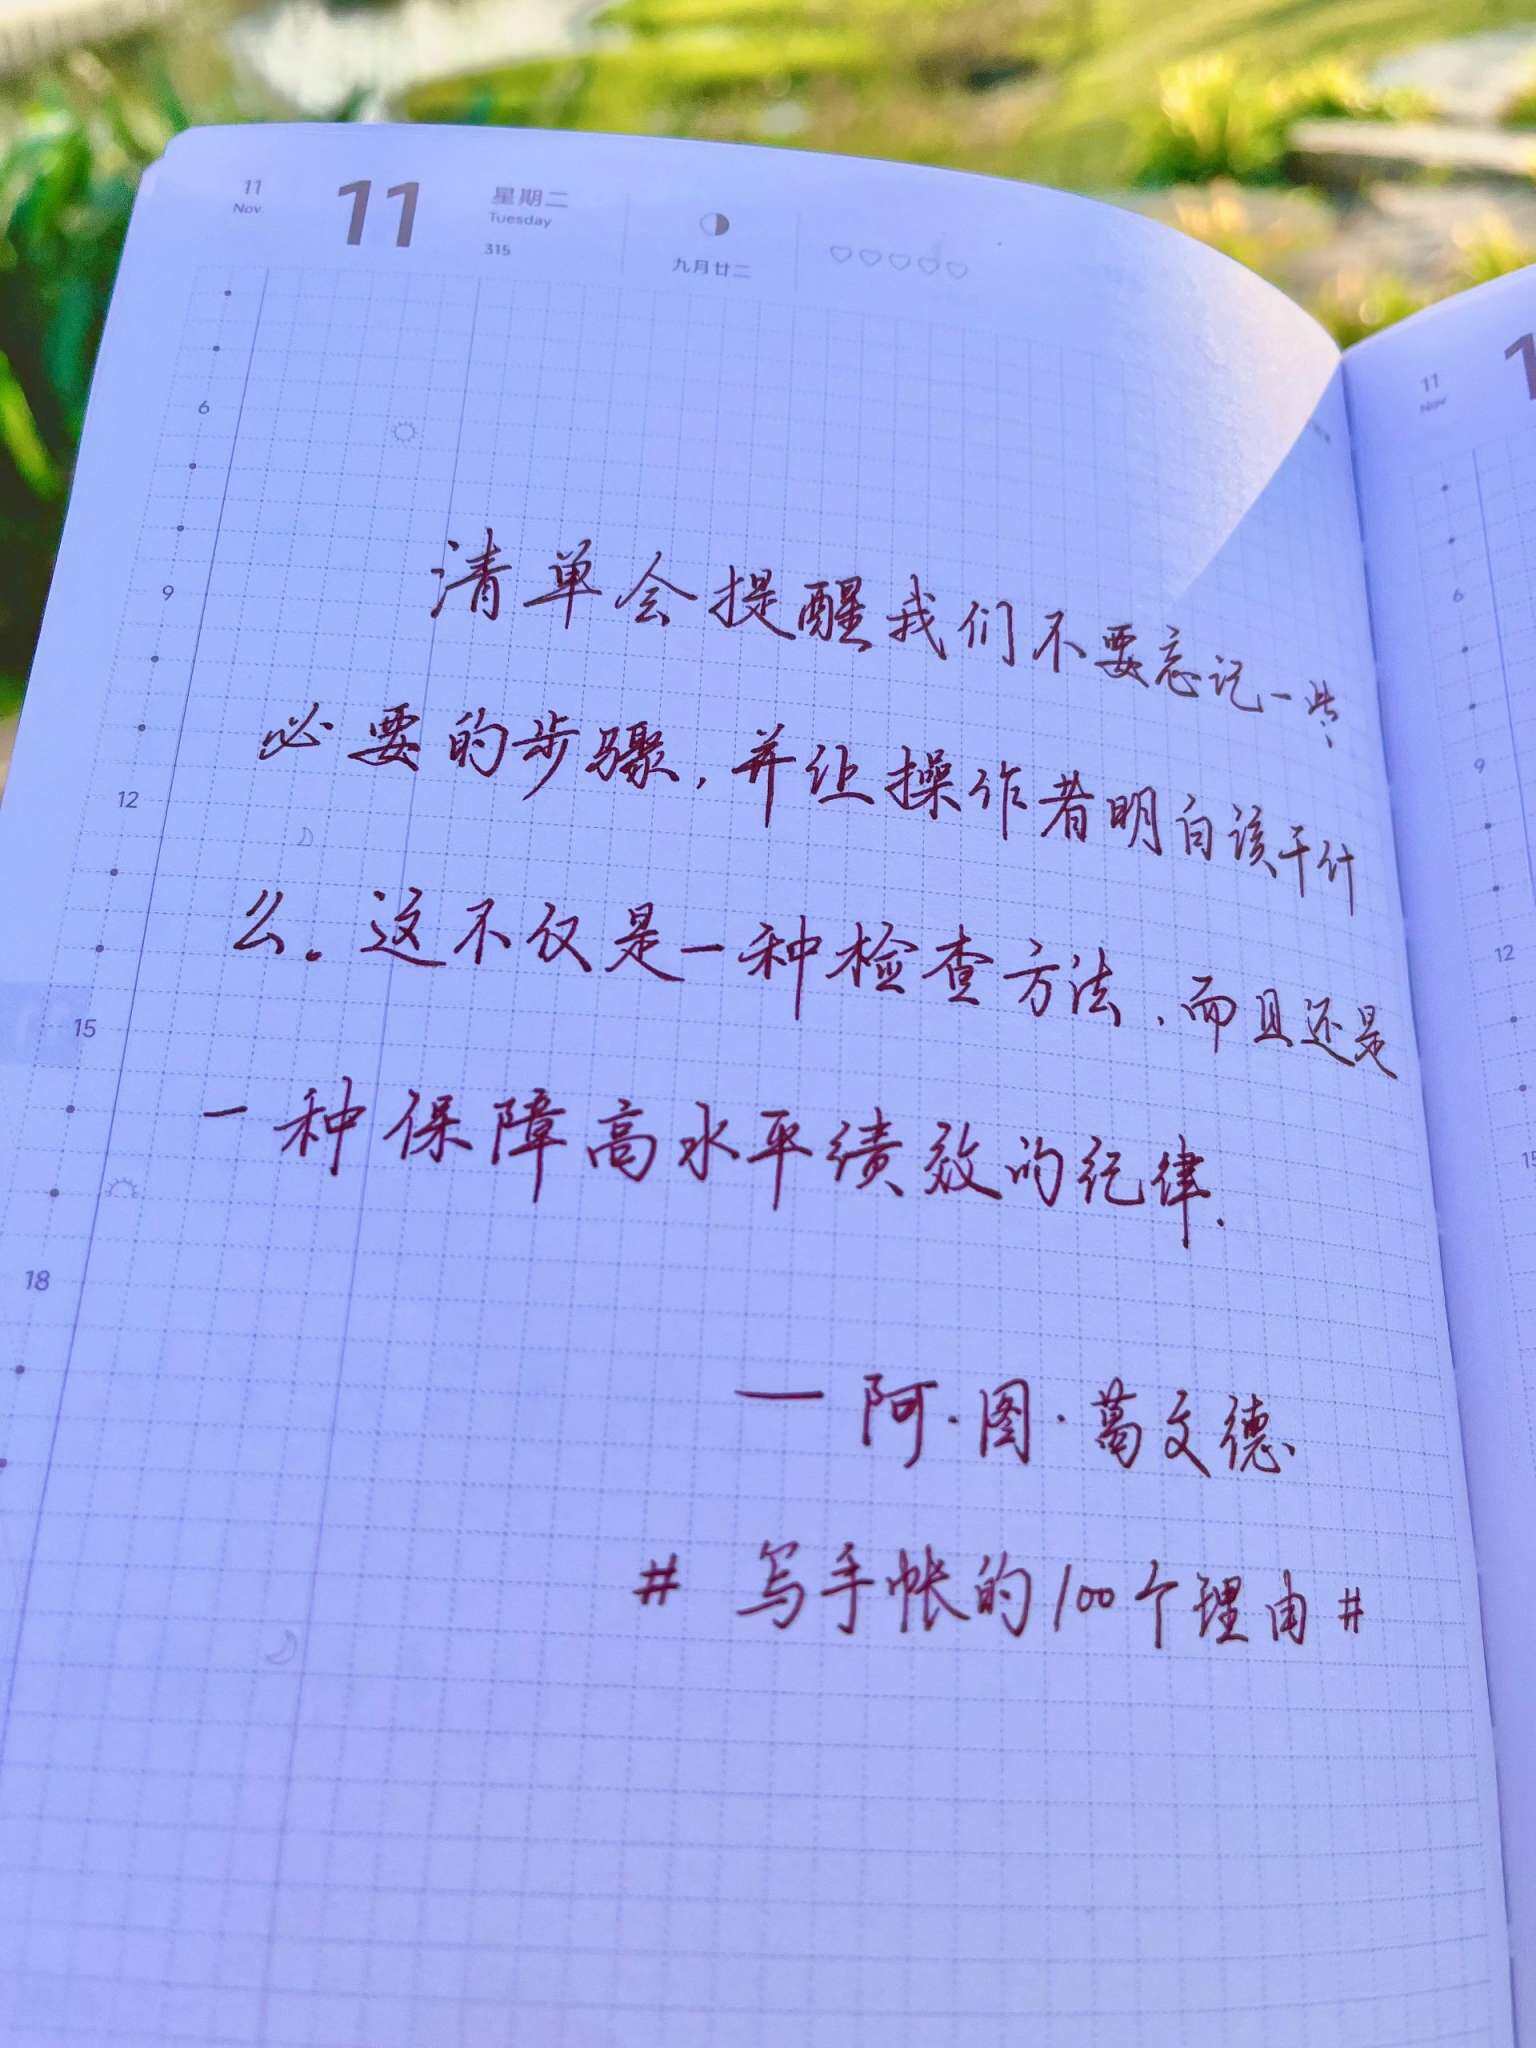 11
Nov.
11
星期二
Tuesday
315
九月廿二
6
9
12
15
18
清单会提醒我们不要忘记一些
必要的步骤,并让操作者明白该干什
么。这不仅是一种检查方法,而且还是
一种保障高水平绩效的纪律.
— 阿·图·葛文德
# 写手帐的100个理由 #
11
Nov
6
9
12